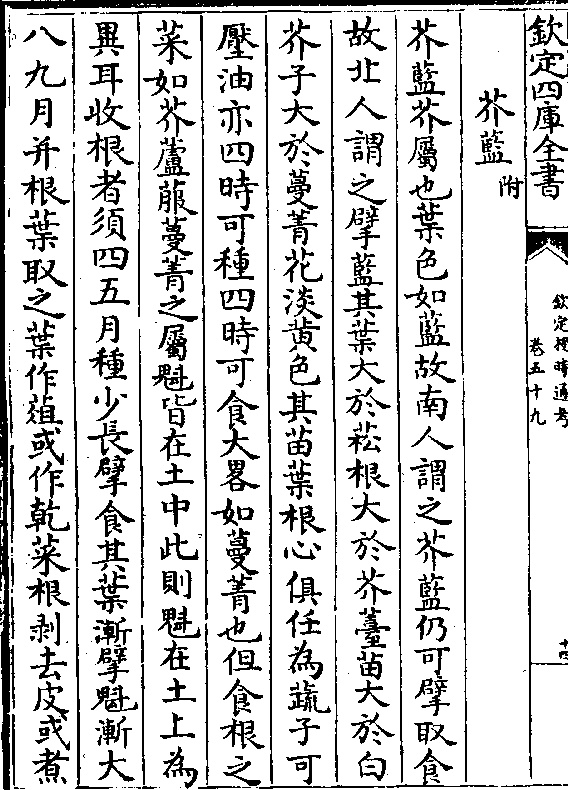 欽定四庫全書
欽定授時通考
卷五十九
十四
芥藍附
芥藍芥屬也葉色如藍故南人謂之芥藍仍可擘取食
故北人謂之擘藍其葉大於菘根大於芥薹苗大於白
芥子大於蔓菁花淡黄色其苗葉根心俱任為蔬子可
壓油亦四時可種四時可食大畧如蔓菁也但食根之
菜如芥蘆菔蔓菁之屬魁皆在土中此則魁在土上為
異耳收根者須四五月種少長擘食其葉漸擘魁漸大
八九月并根葉取之葉作葅或作乾菜根剥去皮或煮